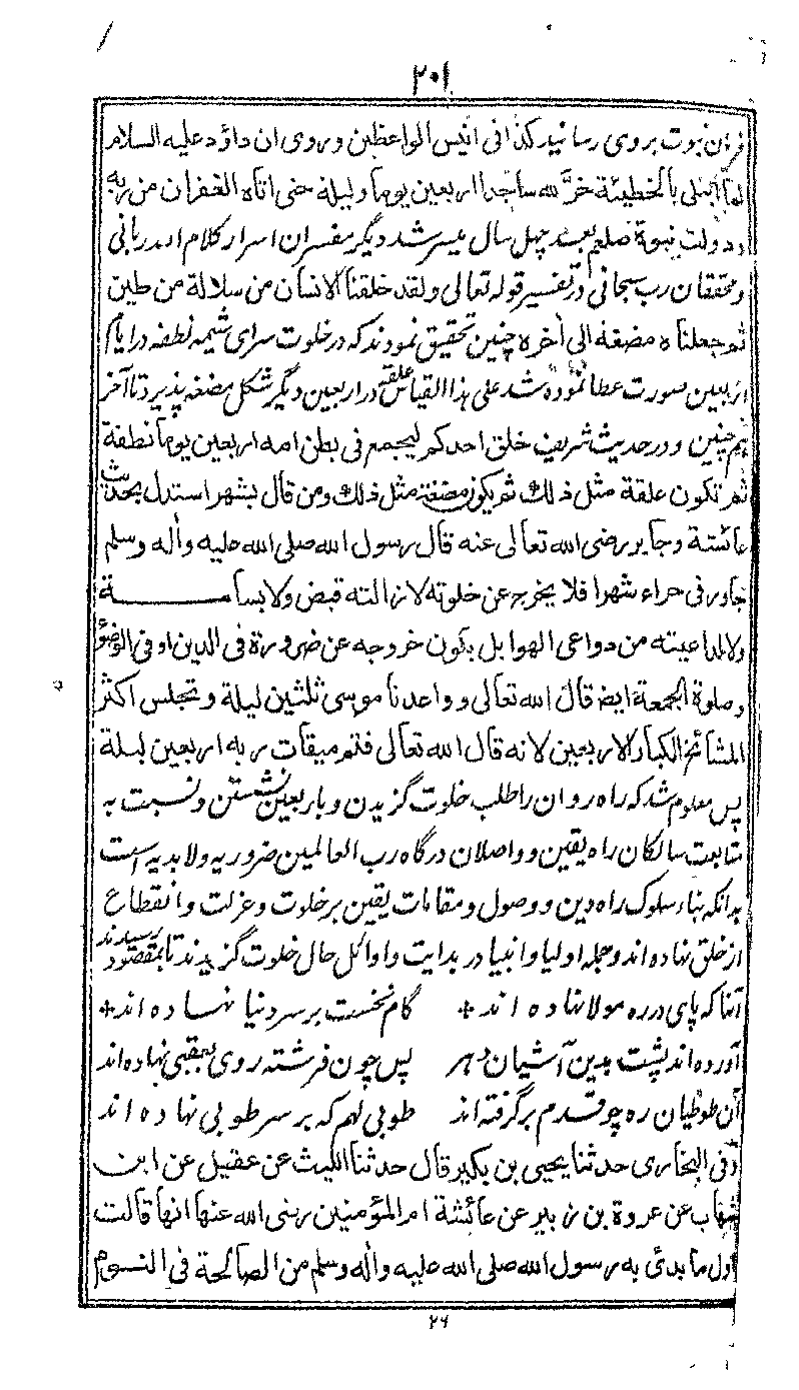 ۲۰۱
فرمان نبوت بروی رسانید کذا فی انیس الواعظین و روی ان داؤد علیه السلام
لما ابتلی بالخطیئة خرّ لله ساجدا اربعین یوما و لیلة حتی اتاه الغفران من ربه
و دولت نبوة صلعم بعد چهل سال میسر شد دیگر مفسران اسرار کلام ربانی
و محققان رب سبحانی در تفسیر قوله تعالی و لقد خلقنا الانسان من سلالة من طین
ثم جعلناه مضغة الی آخره چنین تحقیق نمودند که در خلوت سرای شیمه نطفه در ایام
اربعین صورت عطا نموده شد علی هذا القیاس علقه در اربعین دیگر شکل مضغه پذیرد تا آخر
همچنین و در حدیث شریف خلق احدکم لیجمع فی بطن امه اربعین یوما نطفة
ثم تکون علقة مثل ذلك ثم یکون مضغة مثل ذلك و من قال بشهر استدل بحدیث
عائشة و جابر رضی الله تعالی عنه قال رسول الله صلی الله علیه و اله وسلم
جاور فی حراء شهرا فلا یخرج عن خلوته لازالته قبض و لا بسامة
و لا لداعیته من دواعی الهوا بل یکون خروجه عن ضرورة فی الدین او فی الوضؤ
و صلوة الجمعة ایضا قال الله تعالی و واعدنا موسی ثلثین لیلة و تجلس اکثر
المشائخ الکبار الاربعین لانه قال الله تعالی فتم میقات ربه اربعین لیلة
پس معلوم شد که راه روان را طلب خلوت گزیدن و باربعین نشستن و نسبت به
متابعت سالکان راه یقین و واصلان درگاه رب العالمین ضروریه و لا بدیه است
بدانکه بناء سلوک راه دین و وصول و مقامات یقین بر خلوت و عزلت و انقطاع
از خلق نهاده اند و جمله اولیا و انبیا در بدایت و اوائل حال خلوت گزیدند تا بمقصود رسیدند
آنها که پای در ره مولا نهاده اند * گام نخست بر سر دنیا نهاده اند *
آورده اند پشت بدین آشیان دهر پس چون فرشته روی بعقبی نهاده اند
آن طوطیان ره چو قدم برگرفته اند طوبی لهم که بر سر طوبی نهاده اند
و فی البخاری حدثنا یحیی بن بکیر قال حدثنا اللیث عن عقیل عن ابن
شهاب عن عروة بن زبیر عن عائشة ام المؤمنین رضی الله عنها انها قالت
اول ما بدئ به رسول الله صلی الله علیه و اله وسلم من الصالحة فی النوم
۲۶